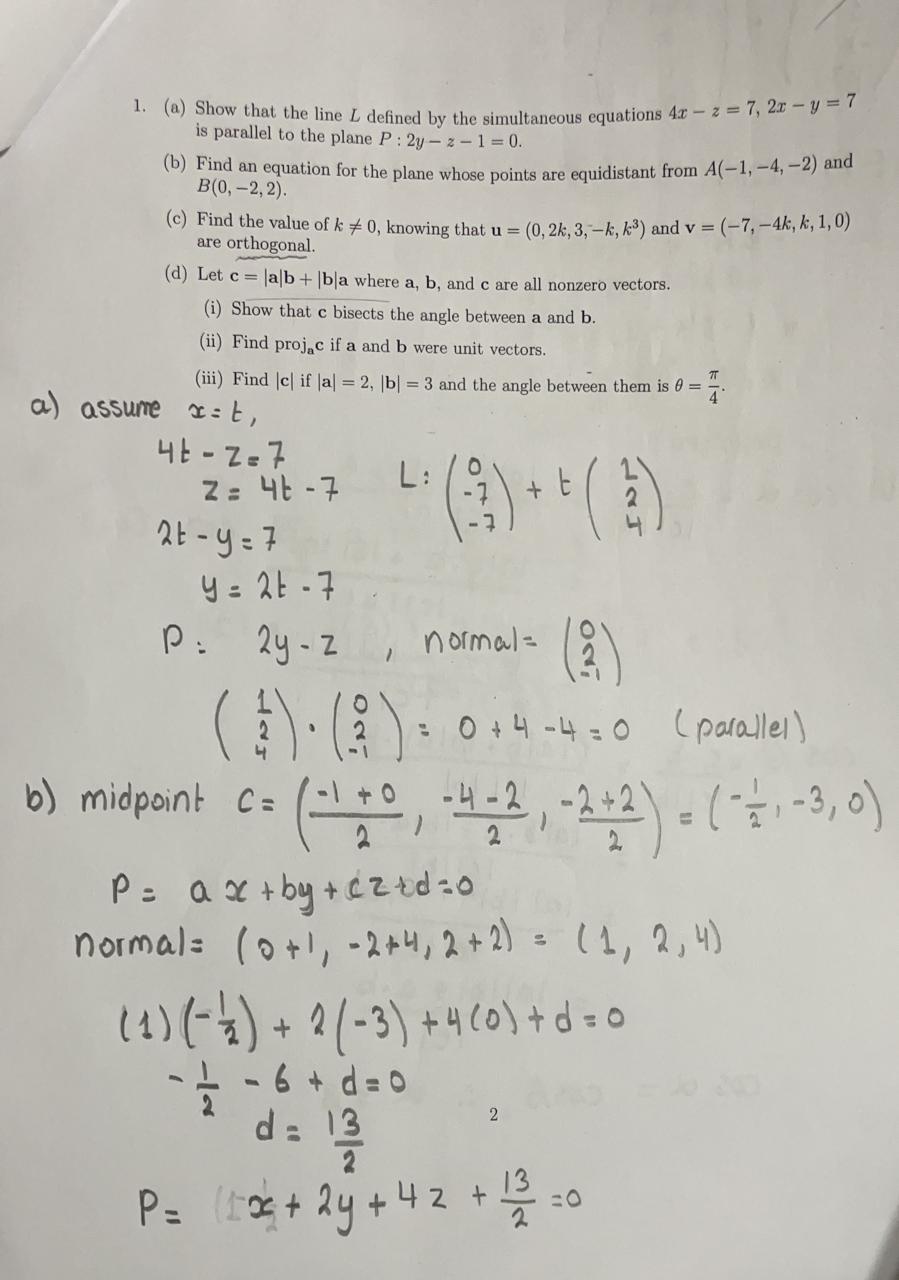 1. (a) Show that the line L defined by the simultaneous equations 4x − z = 7, 2x − y = 7
is parallel to the plane P : 2y − z − 1 = 0.
(b) Find an equation for the plane whose points are equidistant from A(−1, −4, −2) and
B(0, −2, 2).
(c) Find the value of k ≠ 0, knowing that u = (0, 2k, 3, −k, k³) and v = (−7, −4k, k, 1, 0)
are orthogonal.
(d) Let c = |a|b + |b|a where a, b, and c are all nonzero vectors.
(i) Show that c bisects the angle between a and b.
(ii) Find projₐc if a and b were unit vectors.
(iii) Find |c| if |a| = 2, |b| = 3 and the angle between them is θ = π/4.
a) assume x = t,
4t - z = 7
z = 4t - 7 L: (0, -7, -7) + t (1, 2, 4)
2t - y = 7
y = 2t - 7
P: 2y - z , normal = (0, 2, -1)
(1, 2, 4) · (0, 2, -1) = 0 + 4 - 4 = 0 (parallel)
b) midpoint C = ((-1 + 0)/2, (-4 - 2)/2, (-2 + 2)/2) = (-1/2, -3, 0)
P = ax + by + cz + d = 0
normal = (0 + 1, -2 + 4, 2 + 2) = (1, 2, 4)
(1)(-1/2) + 2(-3) + 4(0) + d = 0
-1/2 - 6 + d = 0
d = 13/2
2
P = x + 2y + 4z + 13/2 = 0